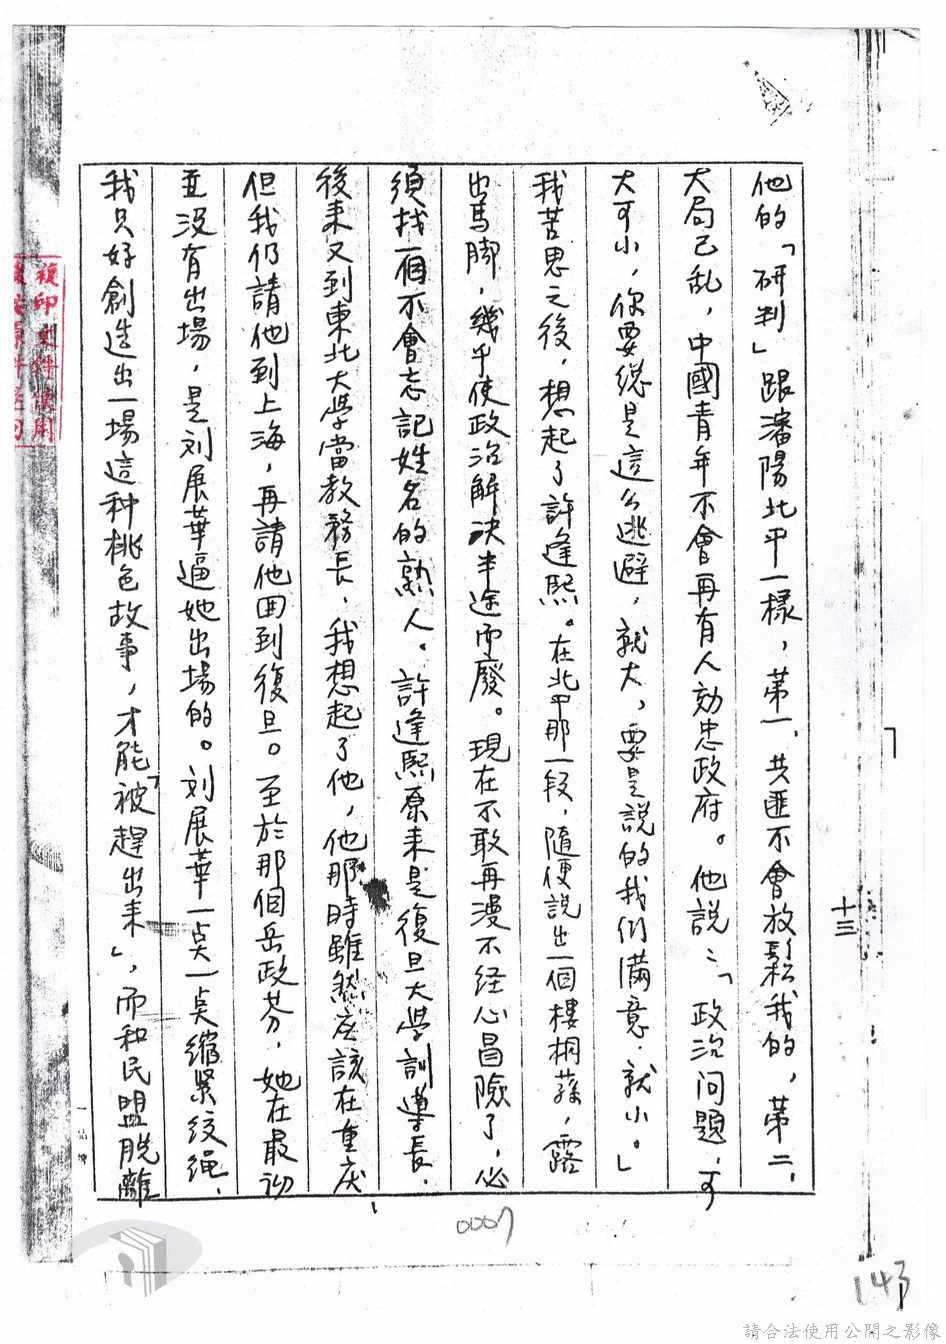 他的「研判」跟瀋陽北平一樣，第一、共匪不會放鬆我的，第二、
大局已乱，中國青年不會再有人効忠政府。他說：「政治问題，可
大可小，你要總是這么逃避，就大，要是説的我们滿意，就小。」
我苦思之後，想起了許逢熙。在北平那一段，隨便説出一個樓桐蓀，露
出馬脚，幾乎使政治解决半途而廢。現在不敢再漫不经心冒險了，必
須找一個不會忘記姓名的熟人。許逢熙原来是復旦大學訓導長，
後来又到東北大學當教務長，我想起了他，他那時雖然应該在重庆
但我仍請他到上海，再請他回到復旦。至於那個岳政芬，她在最初
並没有出場，是刘展華逼她出場的。刘展華一点一点縮緊绞绳，
我只好創造出一場這种桃色故事，才能「被趕出来」，而和民盟脱離
十三
0007
143
複印史料使用
請合法使用公開之影像